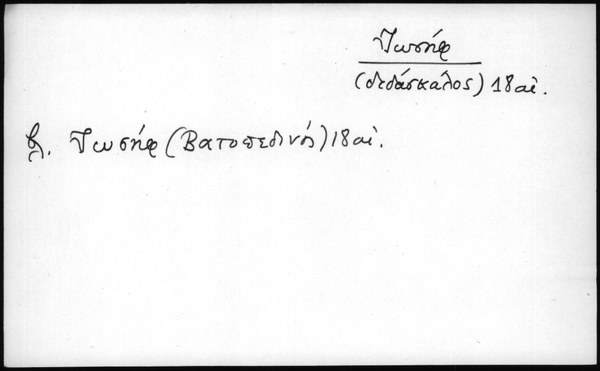 Ἰωσήφ
(διδάσκαλος) 18 αἰ.
βλ. Ἰωσήφ (Βατοπεδινός) 18 αἰ.